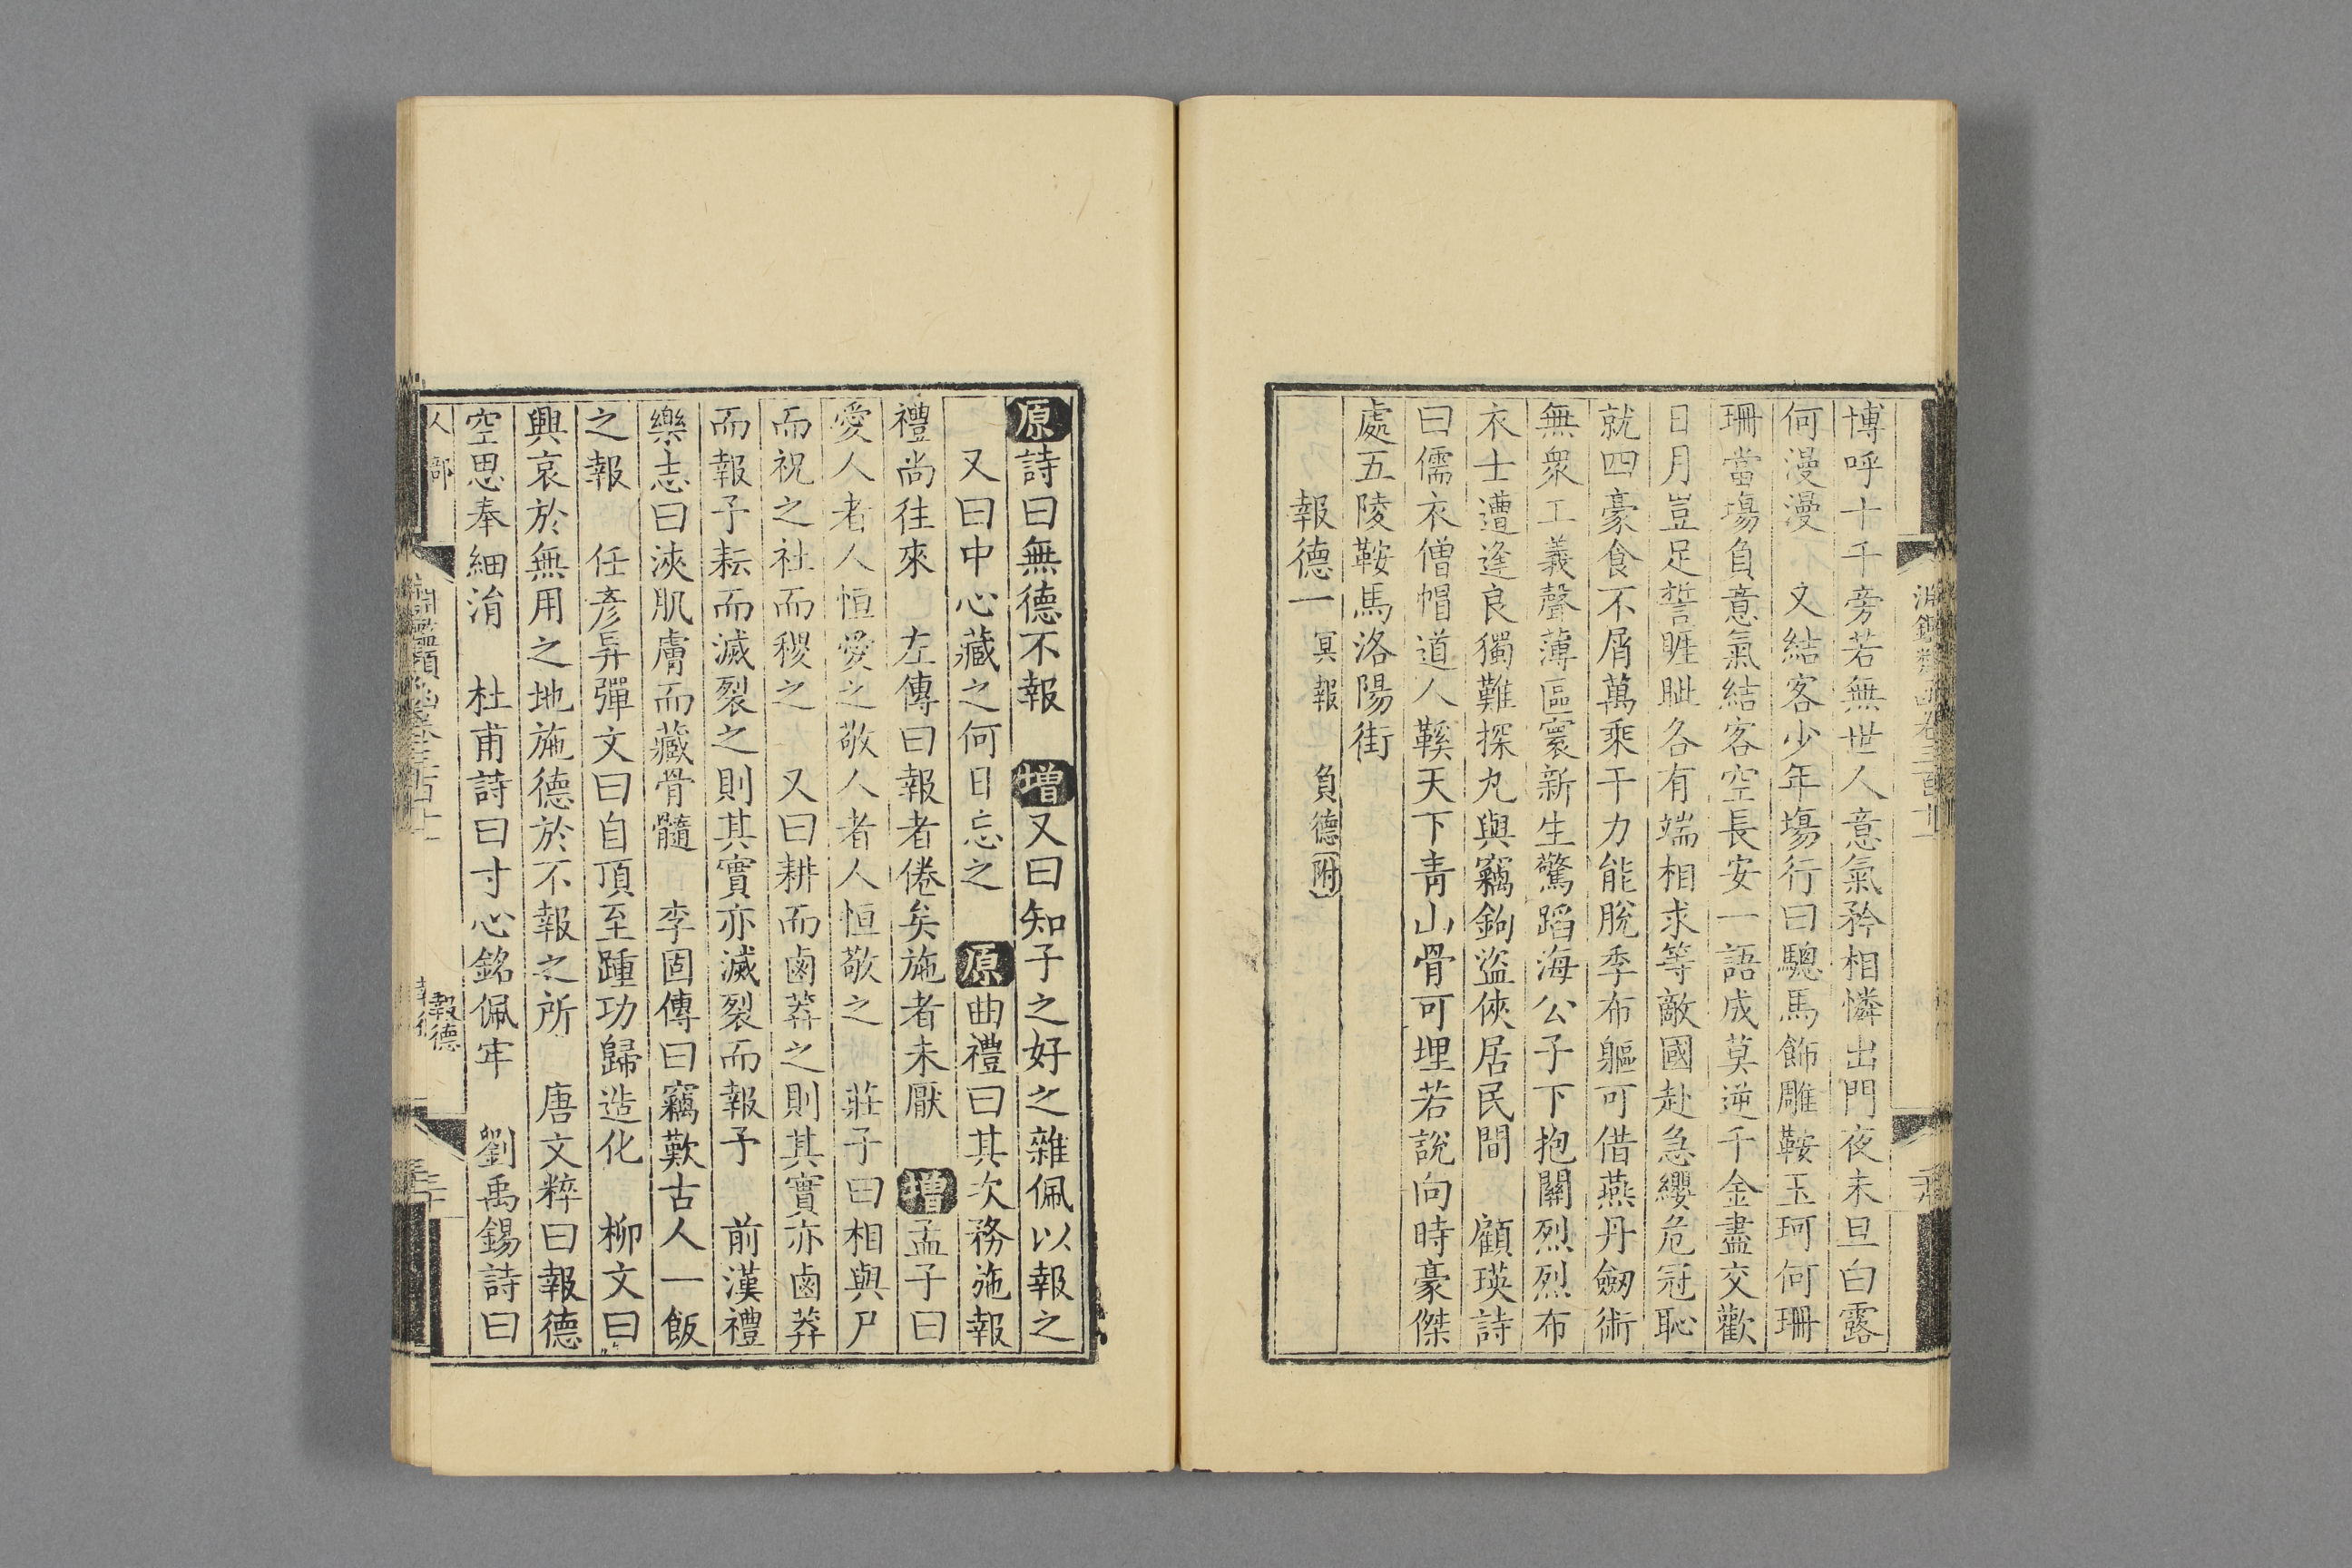 博呼十千旁若無世人意氣矜相憐出門夜未旦白露
何漫漫　又結客少年塲行曰驄馬飾雕鞍玉珂何珊
珊當塲負意氣結客空長安一語成莫逆千金盡交歡
日月豈足誓睚眦各有端相求等敵國赴急纓危冠恥
就四豪食不屑萬乘干力能脫季布軀可借燕丹劒術
無衆工義聲薄區寰新生驚蹈海公子下抱關烈烈布
衣士遭逢良獨難探丸與竊鉤盜俠居民間　顧瑛詩
曰儒衣僧帽道人鞵天下青山骨可埋若說向時豪傑
處五陵鞍馬洛陽街
報德一　冥報　負德附
原詩曰無德不報　增又曰知子之好之雜佩以報之
又曰中心藏之何日忘之　原曲禮曰其次務施報
禮尚往來　左傳曰報者倦矣施者未厭　增孟子曰
愛人者人恒愛之敬人者人恒敬之　莊子曰相與尸
而祝之社而稷之　又曰耕而鹵莽之則其實亦鹵莽
而報予耘而滅裂之則其實亦滅裂而報予　前漢禮
樂志曰浹肌膚而藏骨髓　李固傳曰竊歎古人一飯
之報　任彥昇彈文曰自頂至踵功歸造化　柳文曰
興哀於無用之地施德於不報之所　唐文粹曰報德
空思奉細涓　杜甫詩曰寸心銘佩牢　劉禹錫詩曰
人部
報德